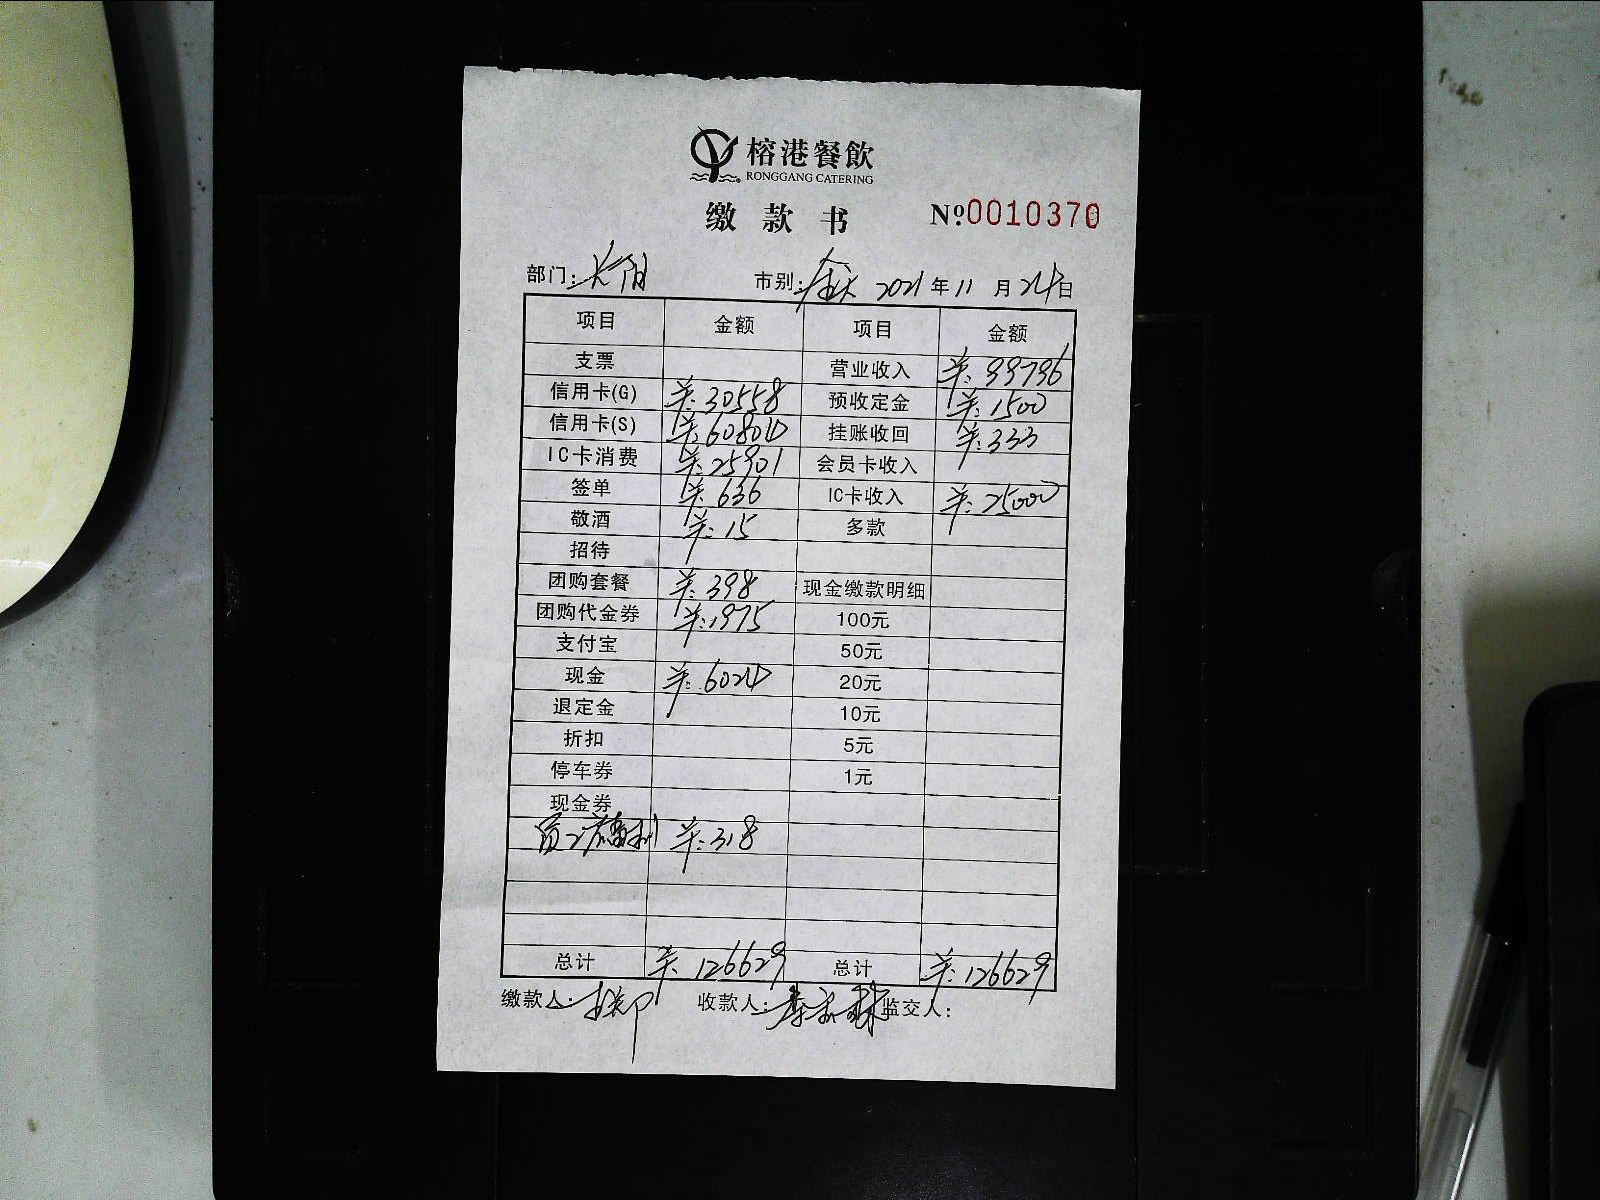 榕港餐飲
RONGGANG CATERING
缴款书 №0010370
部门: 长阳 市别: 全天 2021年11月24日
项目 金额 项目 金额
支票 营业收入 ¥:99796
信用卡(G) ¥:30558 预收定金 ¥:1500
信用卡(S) ¥:60804 挂账收回 ¥:333
IC卡消费 ¥:25901 会员卡收入
签单 ¥:636 IC卡收入 ¥:25000
敬酒 ¥:15 多款
招待
团购套餐 ¥:398 现金缴款明细
团购代金券 ¥:1975 100元
支付宝 50元
现金 ¥:6024 20元
退定金 10元
折扣 5元
停车券 1元
现金券
员工福利 ¥:318
总计 ¥:126629 总计 ¥:126629
缴款人: 收款人: 监交人: